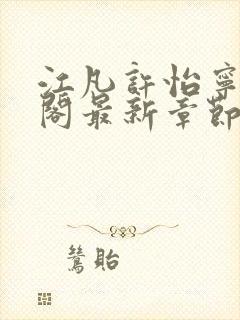 江凡許怡寧
閣最新章節
鷥貽